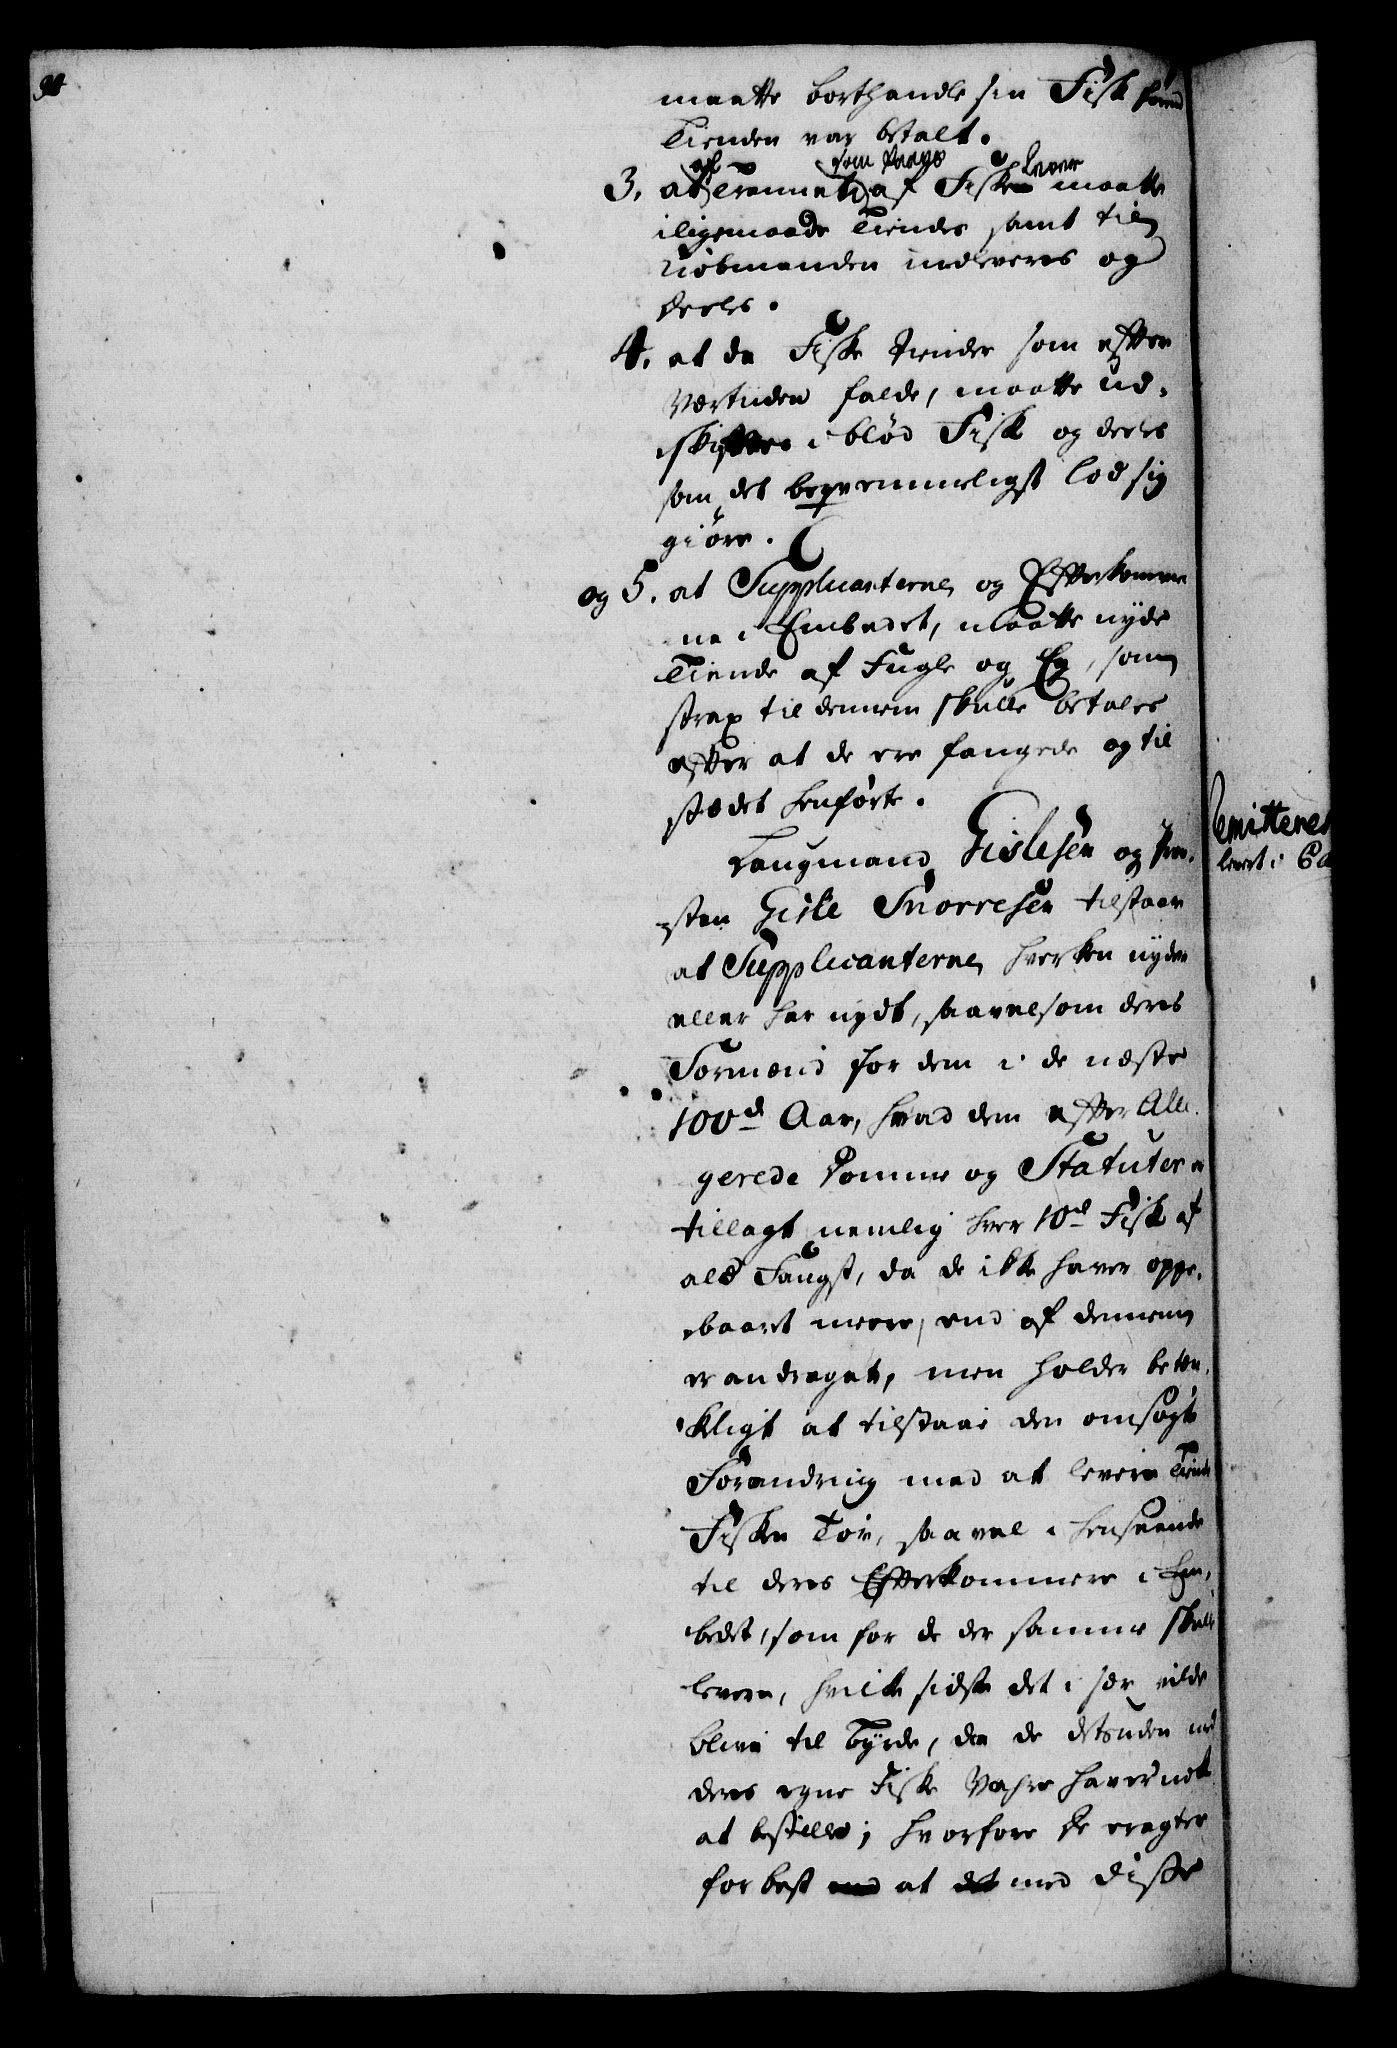 maatte borthandle sin Fisk førend
Tienden var betalt.
3. at Trannet af Fiske Lever maatte
af som Paagr
iligemaade Tiendes samt til
Kiøbmanden indleveres og
deeles.
4. at da Fiske Tiender som efter
Vertiden falde, maatte ud-
skiftes i blød Fisk og deeles
som det beqvemmeligst lod sig
giøre.
og 5. at Supplicanterne og Efterkomme
ne i Embedet, maatte nyde
Tiende af Fugle og Eg, som
strax til dennem skulle betales
efter at de ere fangede og til
stædet henførte.
Laugmand Gislesen og Pro-
sten Gisle Snorresen tilstaar
at Supplicanterne hverken nyder
eller har nydt, saavelsom deres
Formænd for dem i de næste
100de Aar, hvad dem efter Alle-
gerede Domme og Statuter er
tillagt nemlig hver 10de Fisk af
ald Fangst, da de ikke haver oppe-
baaret meere, end af dennem
er andraget, men holder betæn-
keligt at tilstaae den omsøgte
Forandring med at levere Tiende
Fisken Tør, saavel i henseende
til deres Efterkommere i Em-
bedet, som for de der samme skulle
levere, hvilke sidste det i sær vilde
blive til Byrde, da de desuden med
deres egne Fiske Vahre haver nok
at bestille; hvorfore de eragter
for best at med diste
94
Remitteres
levert i